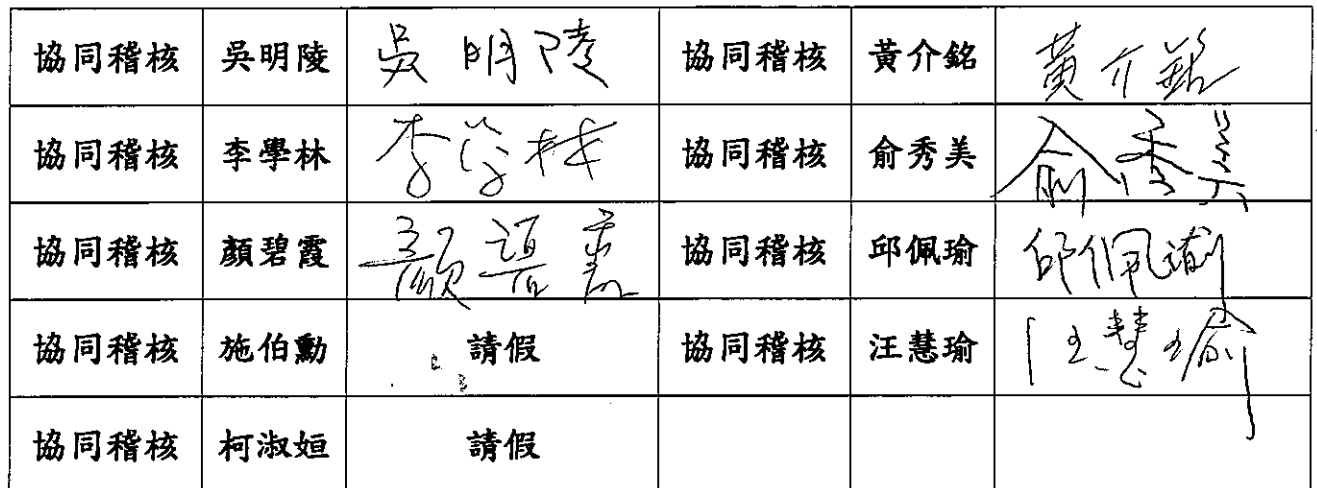 協同稽核 吳明陵 吳明陵 協同稽核 黃介銘 黃介銘
協同稽核 李學林 李学林 協同稽核 俞秀美 俞秀美
協同稽核 顏碧霞 顏碧霞 協同稽核 邱佩瑜 邱佩瑜
協同稽核 施伯勳 請假 協同稽核 汪慧瑜 汪慧瑜
協同稽核 柯淑姮 請假